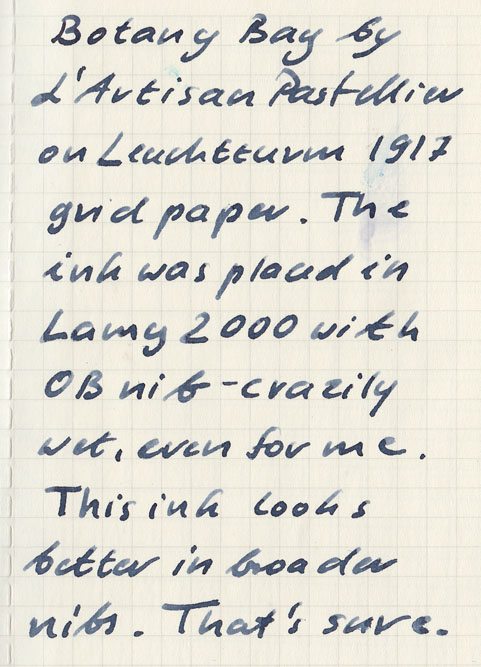 Botany Bay by
L'Artisan Pastellier
on Leuchtturm 1917
grid paper. The
ink was placed in
Lamy 2000 with
OB nib - crazily
wet, even for me.
This ink looks
better in broader
nibs. That's sure.